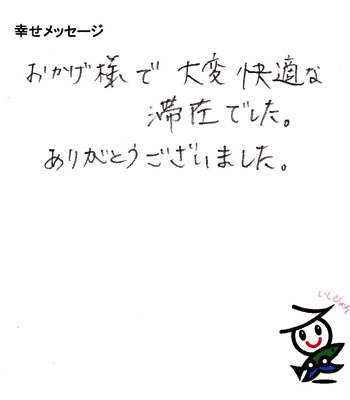 幸せメッセージ
おかげ様で 大変 快適な
滞在でした。
ありがとうございました。